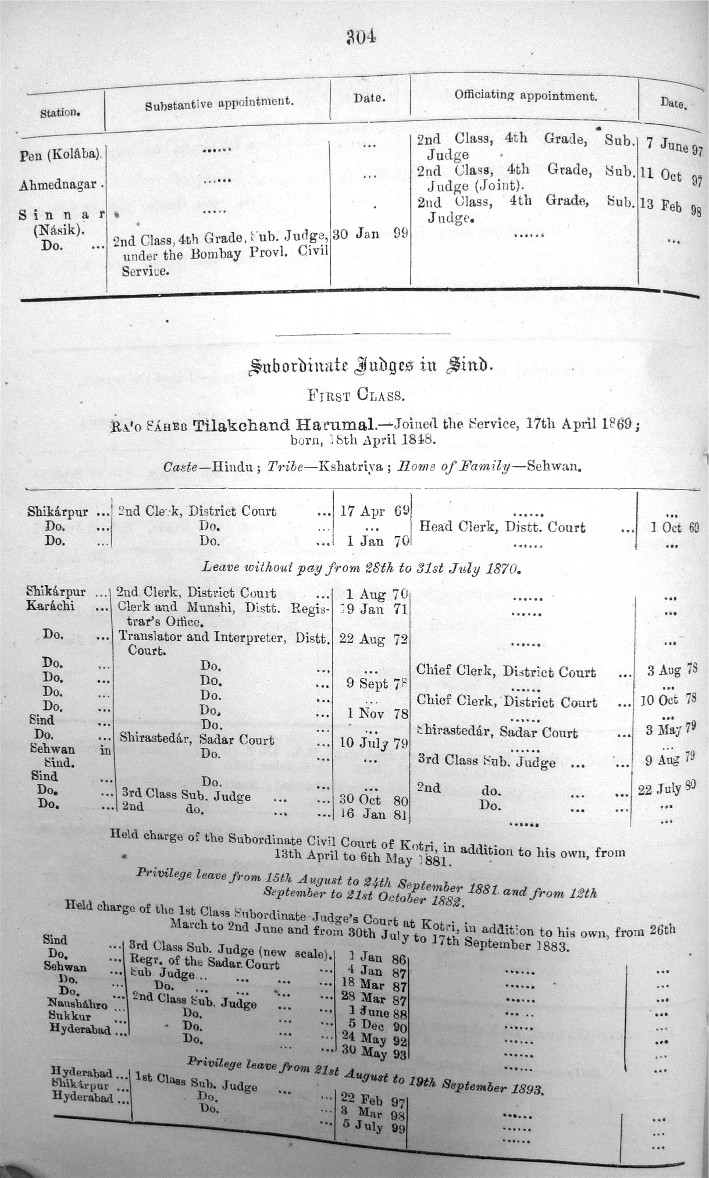 304
Station. Substantive appointment. Date. Officiating appointment. Date.
Pen (Kolâba). ...... ... 2nd Class, 4th Grade, Sub. Judge 7 June 97
Ahmednagar . ...... ... 2nd Class, 4th Grade, Sub. Judge (Joint). 11 Oct 97
Sinnar (Násik). ..... . 2nd Class, 4th Grade, Sub. Judge. 13 Feb 98
Do. ... 2nd Class, 4th Grade, Sub. Judge, under the Bombay Provl. Civil Service. 30 Jan 99 ...... ...
Subordinate Judges in Sind.
FIRST CLASS.
RA'O SÁHEB Tilakchand Harumal.—Joined the Service, 17th April 1869;
born, 18th April 1848.
Caste—Hindu; Tribe—Kshatriya; Home of Family—Sehwan.
Shikárpur ... 2nd Clerk, District Court ... 17 Apr 69 ...... ...
Do. ... Do. ... ... Head Clerk, Distt. Court ... 1 Oct 69
Do. ... Do. ... 1 Jan 70 ...... ...
Leave without pay from 28th to 31st July 1870.
Shikárpur ... 2nd Clerk, District Court ... 1 Aug 70 ...... ...
Karáchi ... Clerk and Munshi, Distt. Registrar's Office. 19 Jan 71 ...... ...
Do. ... Translator and Interpreter, Distt. Court. 22 Aug 72 ...... ...
Do. ... Do. ... ... Chief Clerk, District Court ... 3 Aug 78
Do. ... Do. ... 9 Sept 78 ...... ...
Do. ... Do. ... ... Chief Clerk, District Court ... 10 Oct 78
Do. ... Do. ... 1 Nov 78 ...... ...
Sind ... Do. ... ... Shirastedár, Sadar Court ... 3 May 79
Do. ... Shirastedár, Sadar Court ... 10 July 79 ...... ...
Sehwan in Sind. Do. ... ... 3rd Class Sub. Judge ... ... 9 Aug 79
Sind ... Do. ... ... 2nd do. ... ... 22 July 80
Do. ... 3rd Class Sub. Judge ... ... 30 Oct 80 Do. ... ... ...
Do. ... 2nd do. ... ... 16 Jan 81 ...... ...
Held charge of the Subordinate Civil Court of Kotri, in addition to his own, from
13th April to 6th May 1881.
Privilege leave from 15th August to 24th September 1881 and from 12th
September to 21st October 1882.
Held charge of the 1st Class Subordinate Judge's Court at Kotri, in addition to his own, from 26th
March to 2nd June and from 30th July to 17th September 1883.
Sind ... 3rd Class Sub. Judge (new scale). 1 Jan 86 ...... ...
Do. ... Regr. of the Sadar Court ... 4 Jan 87 ...... ...
Sehwan ... Sub Judge ... ... ... 18 Mar 87 ...... ...
Do. ... Do. ... ... ... 28 Mar 87 ...... ...
Do. ... 2nd Class Sub. Judge ... ... 1 June 88 ...... ...
Nausháhro ... Do. ... ... 5 Dec 90 ...... ...
Sukkur ... Do. ... ... 24 May 92 ...... ...
Hyderabad ... Do. ... ... 30 May 93 ...... ...
Privilege leave from 21st August to 19th September 1893.
Hyderabad ... 1st Class Sub. Judge ... ... 22 Feb 97 ...... ...
Shikárpur ... Do. ... 3 Mar 98 ...... ...
Hyderabad ... Do. ... 5 July 99 ...... ...